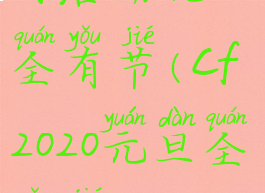 quán yǒu jié
全有节(Cf
yuán dàn quán
2020元旦全